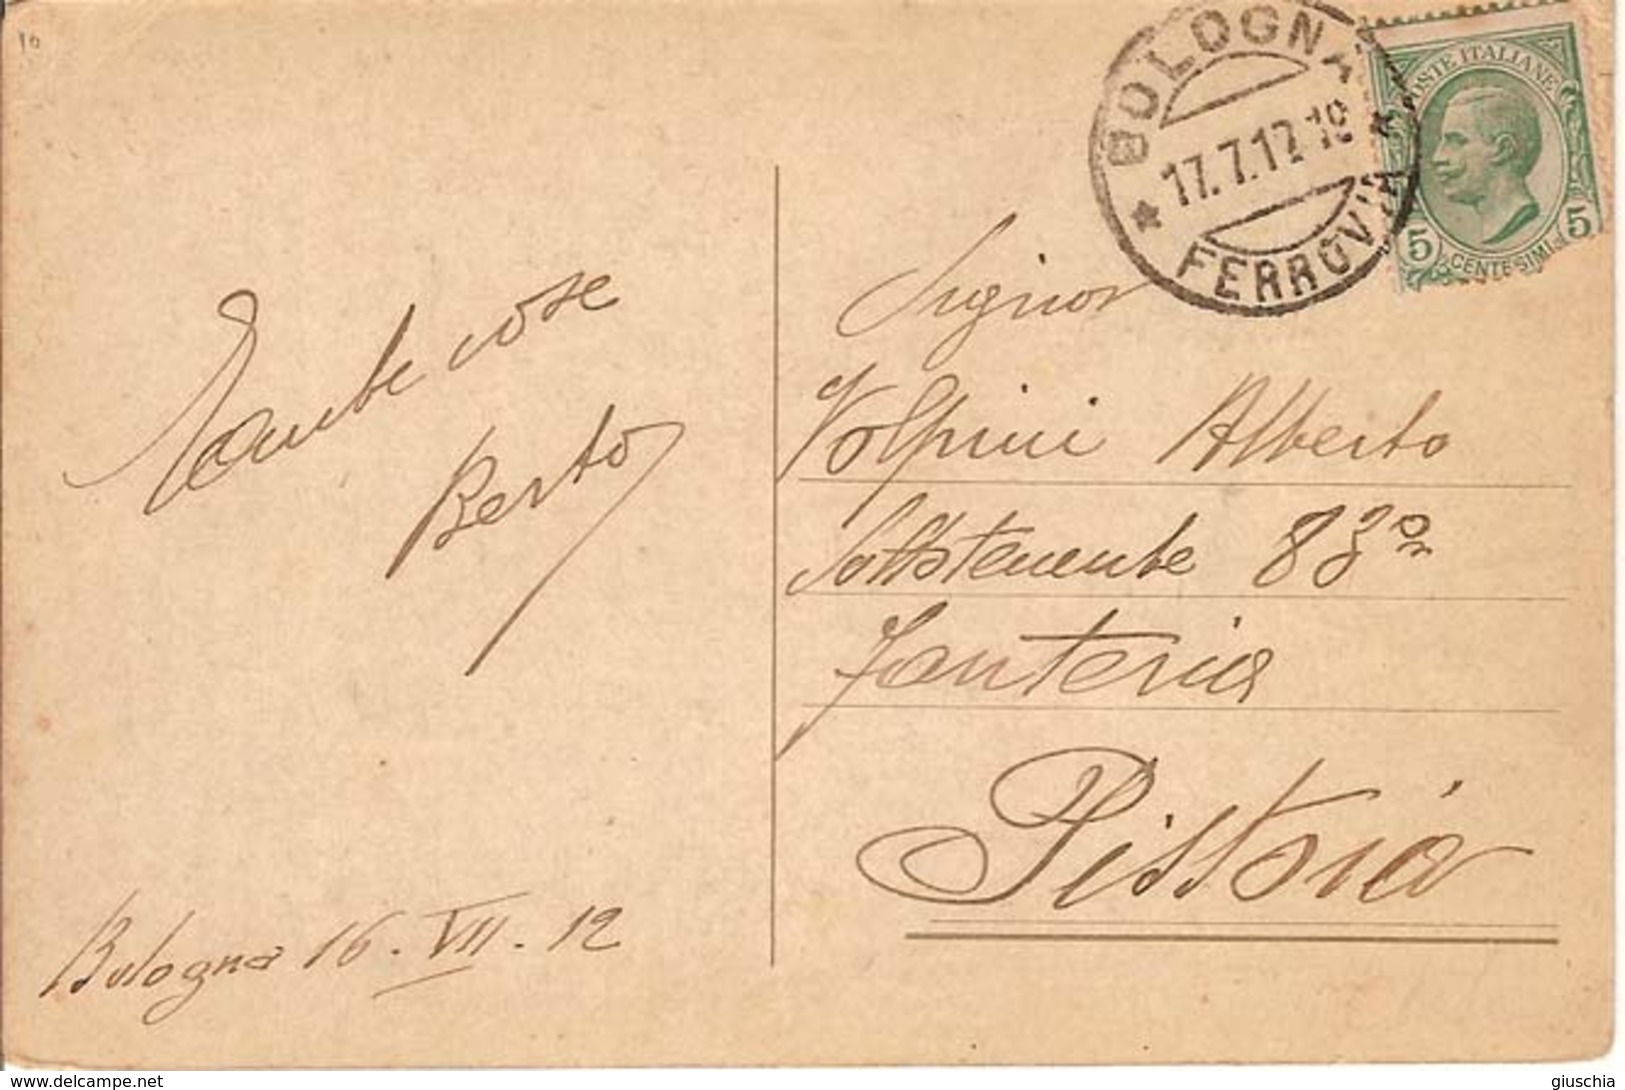 10
BOLOGNA
17.7.12 19
FERROVIA
POSTE ITALIANE
5 CENTESIMI 5
Tante cose
Berto
Bologna 16 - VII - 12
Signor
Volpini Alberto
Sottotenente 83º
Fanteria
Pistoia
www.delcampe.net
giuschia